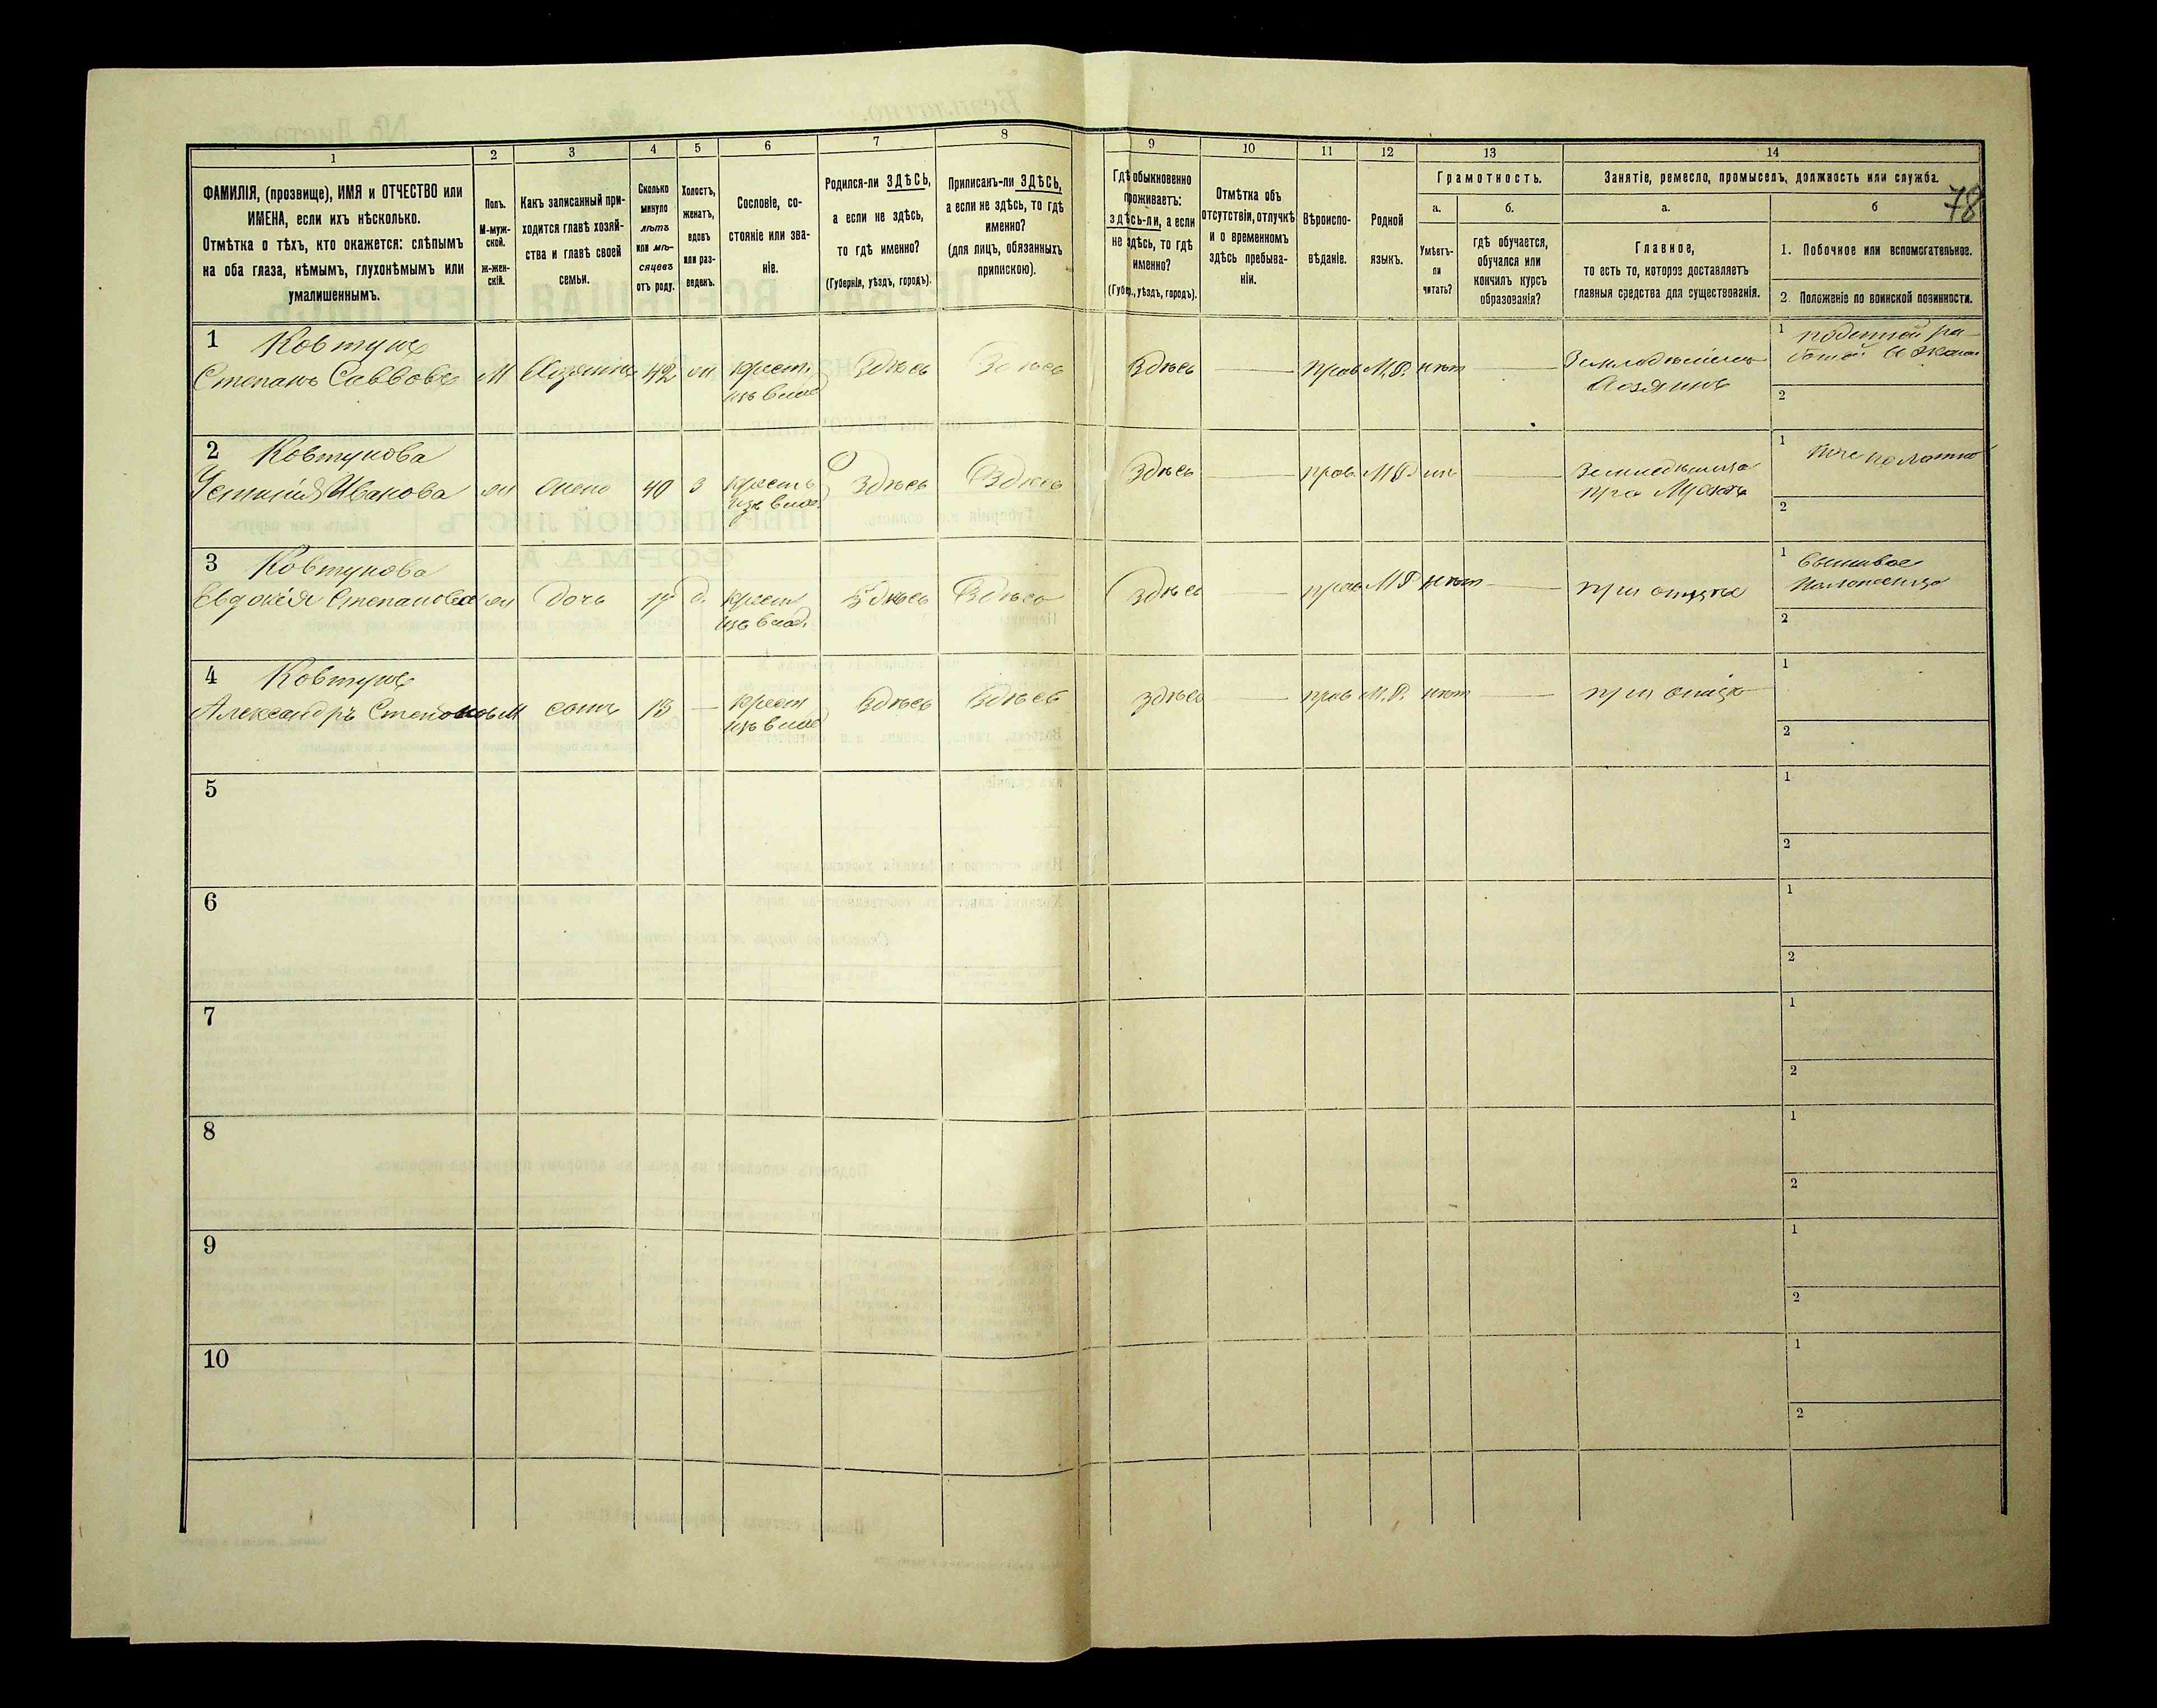 78
1 2 3 4 5 6 7 8 9 10 11 12 13 14
ФАМИЛІЯ, (прозвище), ИМЯ и ОТЧЕСТВО или
ИМЕНА, если ихъ нѣсколько.
Отмѣтка о тѣхъ, кто окажется: слѣпымъ
на оба глаза, нѣмымъ, глухонѣмымъ или
умалишеннымъ.
Полъ.
М-муж-
ской.
ж-жен-
скій.
Какъ записанный при-
ходится главѣ хозяй-
ства и главѣ своей
семьи.
Сколько
минуло
лѣтъ
или мѣ-
сяцевъ
отъ роду.
Холостъ,
женатъ,
вдовъ
или раз-
веденъ.
Сословіе, со-
стояніе или зва-
ніе.
Родился-ли ЗДѢСЬ,
а если не здѣсь,
то гдѣ именно?
(Губернія, уѣздъ, городъ).
Приписанъ-ли ЗДѢСЬ,
а если не здѣсь, то гдѣ
именно?
(для лицъ, обязанныхъ
припискою).
Гдѣ обыкновенно
проживаетъ:
здѣсь-ли, а если
не здѣсь, то гдѣ
именно?
(Губер., уѣздъ, городъ).
Отмѣтка объ
отсутствіи, отлучкѣ
и о временномъ
здѣсь пребыва-
ніи.
Вѣроиспо-
вѣданіе.
Родной
языкъ.
Грамотность.
а.
Умѣетъ-
ли
читать?
б.
гдѣ обучается,
обучался или
кончилъ курсъ
образованія?
Занятіе, ремесло, промыселъ, должность или служба.
а.
Главное,
то есть то, которое доставляетъ
главныя средства для существованія.
б
1. Побочное или вспомогательное.
2. Положеніе по воинской повинности.
1 Ковтунъ
Степанъ Саввовъ м Хозяинъ 42 ж крест. Здѣсь Здѣсь Здѣсь — прав М.Р. нѣтъ —
изъ влад
Хозяинъ
1
2
2 Ковтунова
Устинія Иванова ж жена 40 з крестъ Здѣсь Здѣсь Здѣсь — прав. М.Р. —
изъ влад.
при Мужѣ
1
2
3 Ковтунова
Евдокія Степанова ж дочь д. крест Здѣсь Здѣсь Здѣсь — прав М.Р. нѣтъ — при отцѣ
изъ влад.
1
2
4 Ковтунъ
Александръ Степановъ М сынъ 13 — крест Здѣсь Здѣсь здѣсь — прав М.Р. нѣт — при отцѣ
изъ влад
1
2
5 1
2
6 1
2
7 1
2
8 1
2
9 1
2
10 1
2